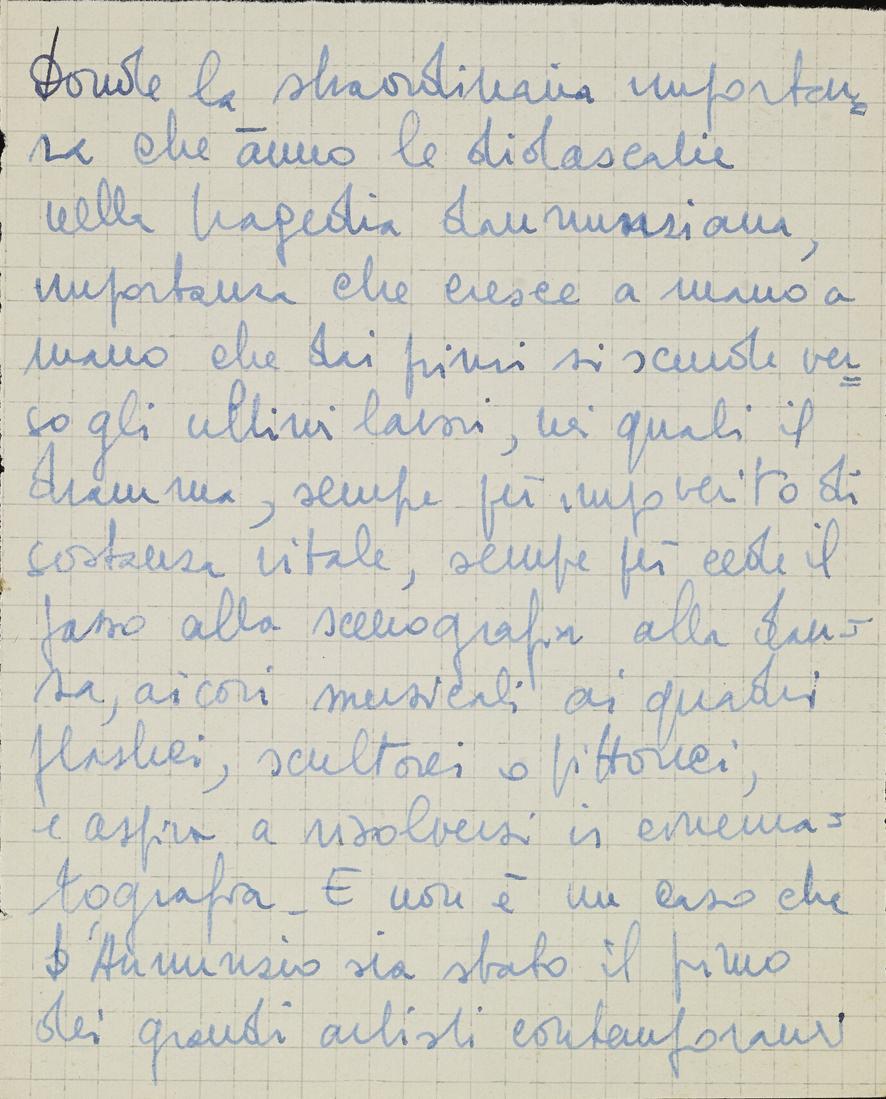 Donde la straordinaria importan=
za che ānno le didascalie
nella tragedia dannunziana,
importanza che cresce a mano a
mano che dai primi si scende ver=
so gli ultimi lavori, nei quali il
dramma, sempre più impoverito di
sostanza vitale, sempre più cede il
passo alla scenografia alla dan=
za, ai cori musicali ai quadri
plastici, scultorei o pittorici,
e aspira a risolversi in cinema=
tografia_ E non è un caso che
D'Annunzio sia stato il primo
dei grandi artisti contemporanei